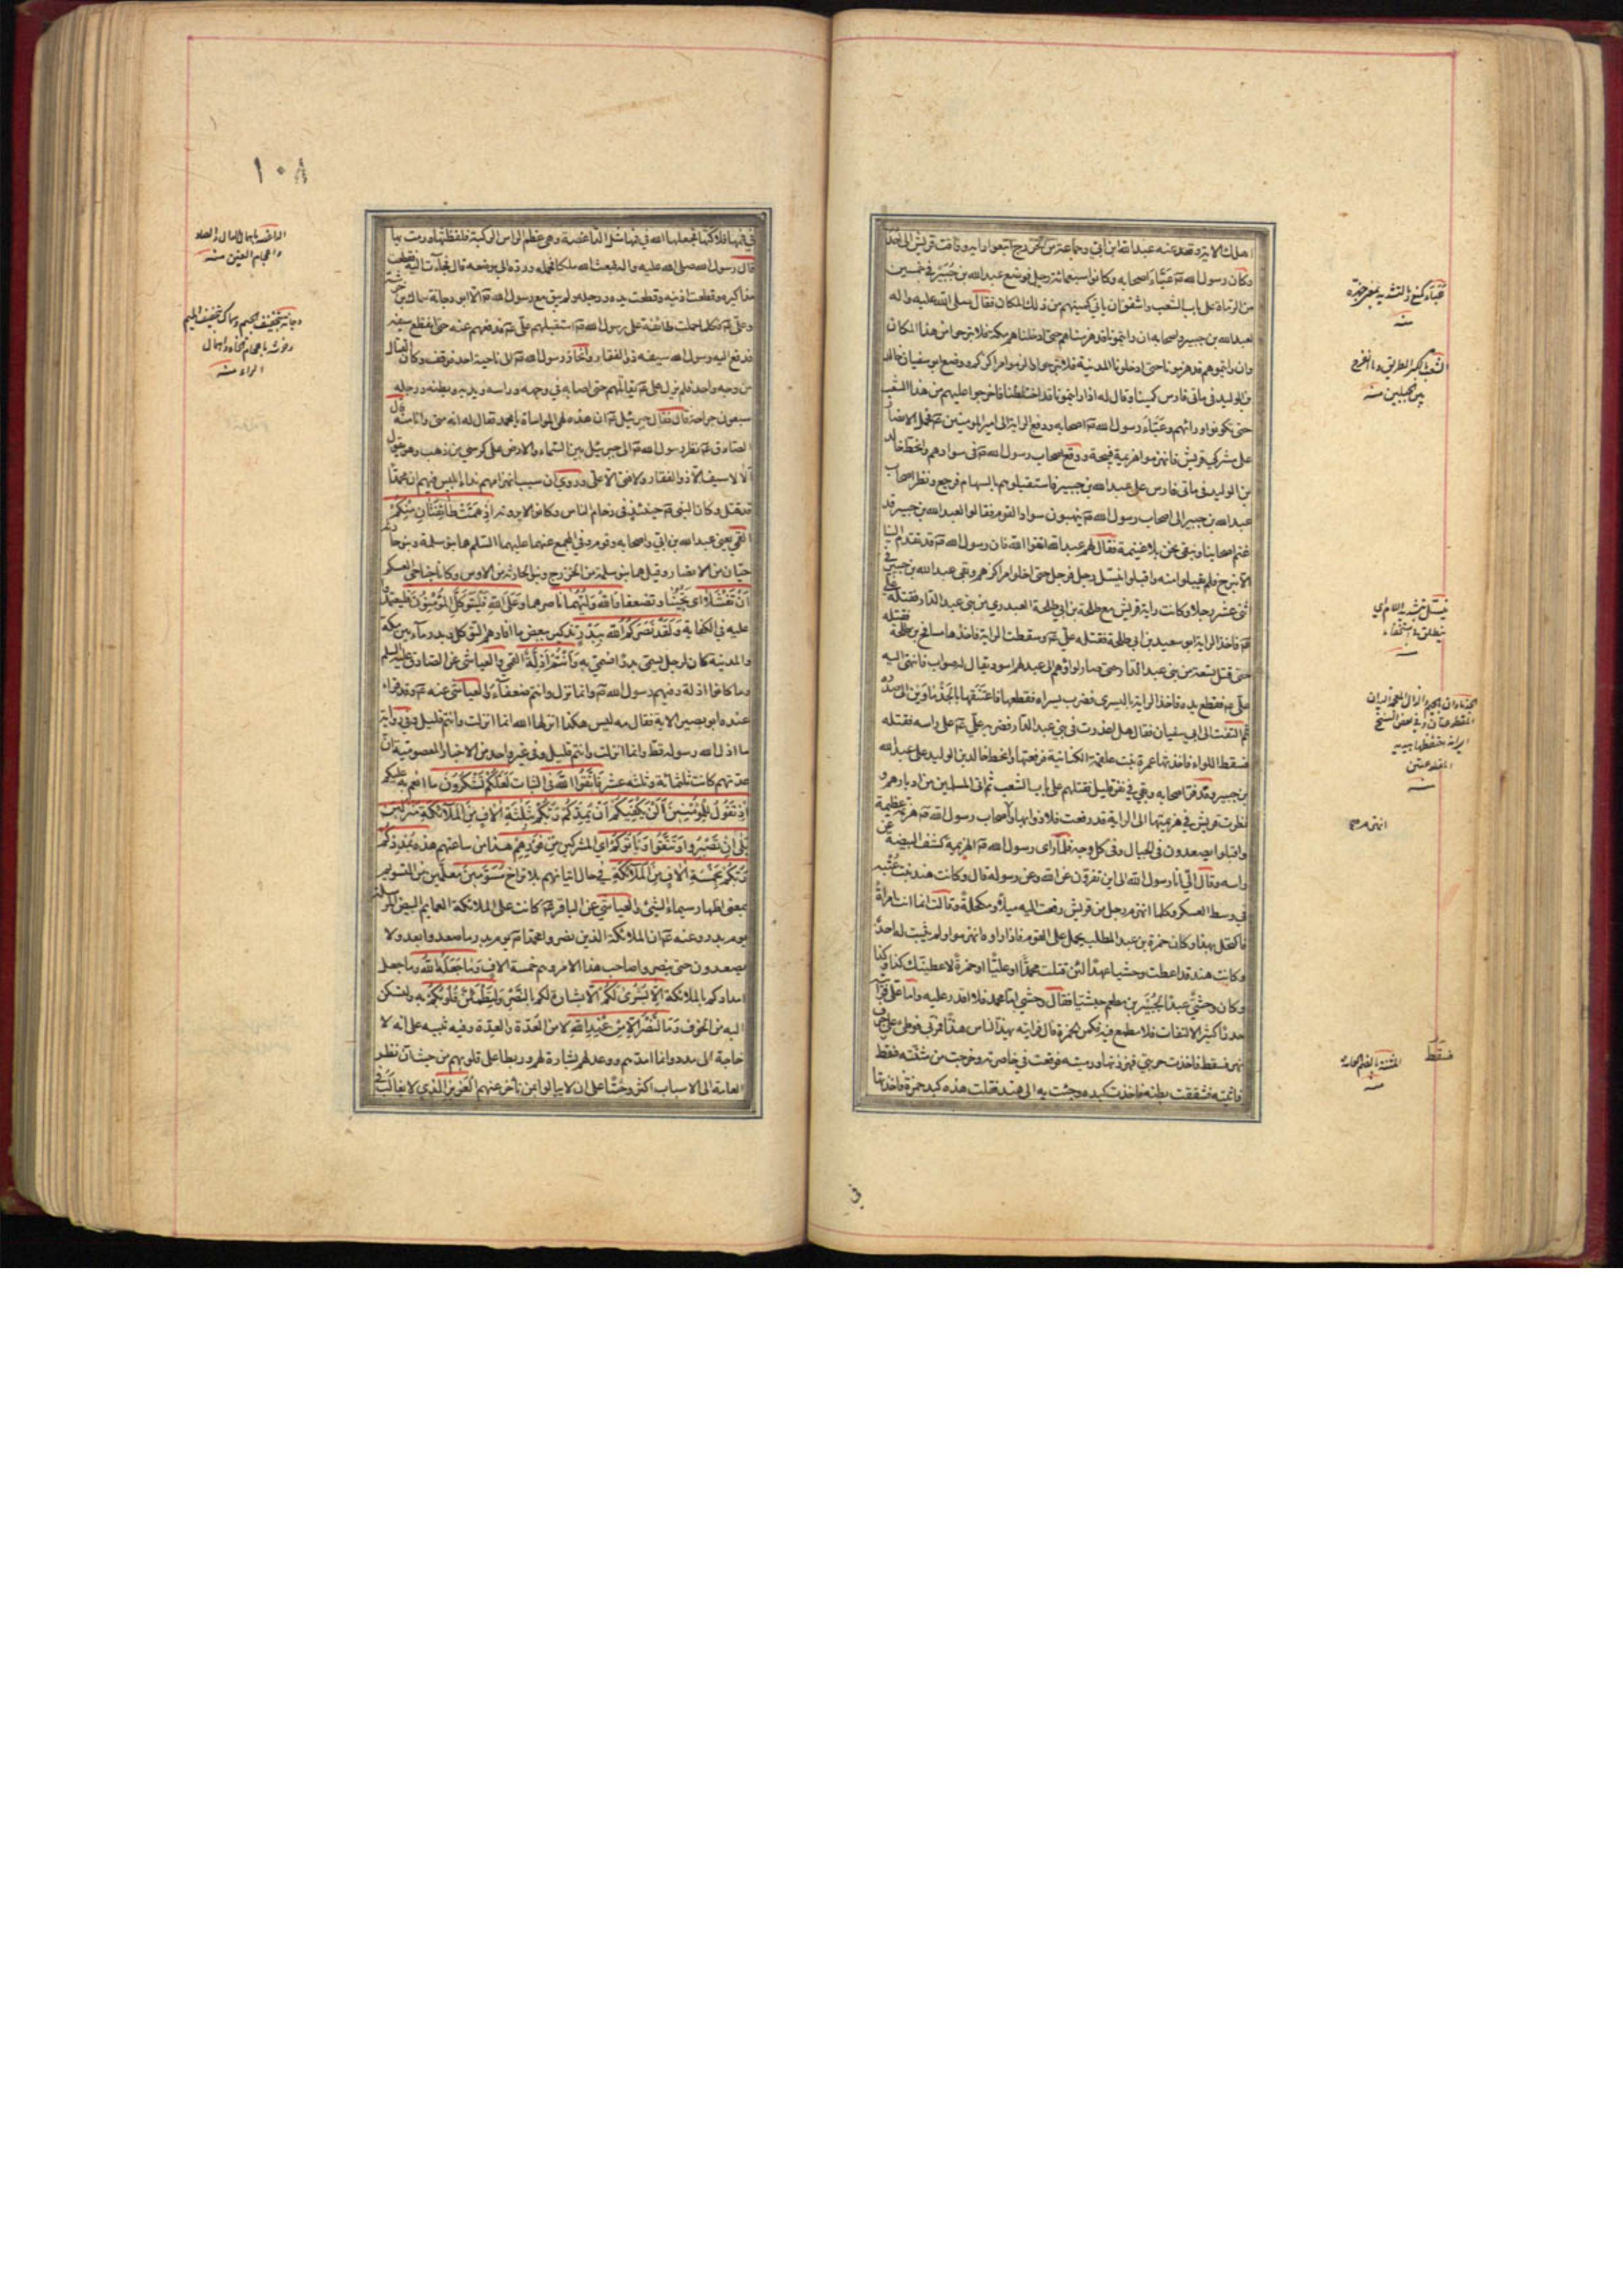 وكان رسول الله صم عبّأ اصحابه وكانوا سبعمائة رجل فوضع عبد الله بن جُبَيْر في خمسين
من الرماة على باب الشعب واشفق ان ياتي كمينهم من ذلك المكان فقال صلى الله عليه واله
لعبد الله بن جبير واصحابه ان رايتمونا قد هزمناهم حتى ادخلناهم مكة فلا تبرحوا من هذا المكان
وان رايتموهم قد هزمونا حتى ادخلونا المدينة فلا تبرحوا والزموا مراكزكم ووضع ابو سفيان خالد
بن الوليد في ماتي فارس كمينا وقال له اذا رايتمونا قد اختلطنا فاخرجوا عليهم من هذا الشعب
حتى تكونوا ورائهم وعبّأ رسول الله صم اصحابه ودفع الراية الى امير المومنين عم فحمل الانصار
على مشركي قريش فانهزموا هزيمة قبيحة ووقع اصحاب رسول الله صم في سوادهم وانحط خالد
بن الوليد في ماتي فارس على عبد الله بن جبير فاستقبلوهم بالسهام فرجع ونظر اصحاب
عبد الله بن جبير الى اصحاب رسول الله صم ينهبون سواد القوم فقالوا لعبد الله بن جبير قد
غنم اصحابنا ونبقى نحن بلا غنيمة فقال لهم عبد الله اتقوا الله فان رسول الله صم قد تقدم الينا
الا نبرح فلم يقبلوا منه واقبلوا ينسل رجل فرجل حتى اخلوا مراكزهم وبقي عبد الله بن جبير في
اثنى عشر رجلا وكانت راية قريش مع طلحة بن ابي طلحة العبدري من بني عبد الدار فقتله علي
عم فاخذ الراية ابو سعيد بن ابي طلحة فقتله علي عم وسقطت الراية فاخذها مسافع بن طلحة فقتله
حتى قتل تسعة من بني عبد الدار حتى صار لواؤهم الى عبد لهم اسود يقال له صواب فانتهى اليه
علي عم فقطع يده فاخذ الراية باليسرى فضرب يسراه فقطعها فاعتنقها بالجَذماوين الى صدره
ثم التفت الى ابي سفيان فقال هل اعذرت في بني عبد الدار فضربه علي عم على راسه فقتله
فسقط اللواء فاخذتها عمرة بنت علقمة الكنانية فرفعتها وانحط خالد بن الوليد على عبد الله
بن جبير وقد فرّ اصحابه وبقي في نفر قليل فقتلهم على باب الشعب ثم اتى المسلمين من ادبارهم و
نظرت قريش في هزيمتها الى الراية قد رفعت فلاذوا بها واصحاب رسول الله صم هزيمة عظيمة
واقبلوا يصعدون في الجبال وفي كل وجه فلما راى رسول الله صم الهزيمة كشف البيضة عن
راسه وقال الي انا رسول الله الى اين تفرون عن الله وعن رسوله قال وكانت هند بنت عُتْبة
في وسط العسكر وكلما انهزم رجل من قريش رفعت اليه ميلا ومكحلة وقالت انما انت امراة
فاكتحل بهذا وكان حمزة بن عبد المطلب يحمل على القوم فاذا راوه انهزموا ولم يثبت له احد
وكانت هند قد اعطت وحشيا عهدا لئن قتلت محمدا او عليّا او حمزة لاعطينك كذا وكذا
وكان وحشيّ عبدا لجُبَير بن مطعم حبشيا فقال وحشي اما محمد فلا اقدر عليه واما علي فرايته
حذرا كثير الالتفات فلا مطمع فيه فكمن لحمزة قال فرايته يهد الناس هدّا فمر بي فوطئ على جرف
نهر فسقط فاخذت حربتي فهززتها ورميته فوقعت في خاصرته وخرجت من
فاتيته فشققت بطنه فاخذت كبده وجئت به الى هند فقلت هذه كبد حمزة فاخذتها
فسقط
انتهى منه
في
١٠٨
في فيها فلاكتها فجعلها الله في فيها مثل الداغصة وهي عظم الراس الركبة فلفظتها ورمت بها
قال رسول الله صلى الله عليه واله فبعث الله ملكا فحمله ورده الى موضعه قال فجاءت اليه فقطعت
مذاكيره وقطعت اذنيه وقطعت يده ورجله ولم يبق مع رسول الله صم الا ابو دجانة سماك بن خرشة
وعلي عم فكلما حملت طائفة على رسول الله صم استقبلهم علي عم فدفعهم عنه حتى انقطع سيفه
فدفع اليه رسول الله سيفه ذا الفقار وانحاز رسول الله صم الى ناحية احد فوقف وكان القتال
من وجه واحد فلم يزل علي عم يقاتلهم حتى اصابه في وجهه وراسه ويديه وبطنه ورجليه
سبعون جراحة قال فقال جبرئيل عم ان هذه لهي المواساة يا محمد فقال له انه مني وانا منه قال
الصادق عم نظر رسول الله صم الى جبرئيل بين السماء والارض على كرسي من ذهب وهو يقول
لا سيف الا ذو الفقار ولا فتى الا علي وروي ان سبب انهزامهم نداء ابليس فيهم ان محمدا
قد قتل وكان النبي صم حينئذ في زحام الناس وكانوا لا يرونه اِذْ هَمَّتْ طَائِفَتَانِ مِنْكُمْ
القمي يعني عبد الله بن ابي واصحابه وقومه وفي المجمع عنهما عليهما السلم هما بنو سلمة وبنو حارثة
حيان من الانصار وقيل هما بنو سلمة من الخزرج وبنو الحارثة من الاوس وكانا جناحي العسكر
اَنْ تَفْشَلَا اى تجبنا وتضعفا وَاللهُ وَلِيُّهُمَا ناصرهما وَعَلَى اللهِ فَلْيَتَوَكَّلِ الْمُؤْمِنُونَ فليعتمدوا
عليه في الكفاية وَلَقَدْ نَصَرَكُمُ اللهُ بِبَدْرٍ تذكير ببعض ما افادهم التوكل وبدر ماء بين مكة
والمدينة كان لرجل يسمى بدرا فسمي به وَاَنْتُمْ اَذِلَّةٌ القمي والعياشي عن الصادق عليه السلم
وما كانوا اذلة وفيهم رسول الله صم وانما نزل وانتم ضعفاء والعياشي عنه عم وقد قراه
عنده ابو بصير الاية فقال مه ليس هكذا انزلها الله انما انزلت وانتم قليل وفي رواية
ما اذل الله رسوله قط وانما انزلت وانتم قليل وفي غير واحد من الاخبار المعصومية ان
عدتهم كانت ثلثمائة وثلثة عشر فَاتَّقُوا اللهَ في الثبات لَعَلَّكُمْ تَشْكُرُونَ ما انعم به عليكم
اِذْ تَقُولُ لِلْمُؤْمِنِينَ اَلَنْ يَكْفِيَكُمْ اَنْ يُمِدَّكُمْ رَبُّكُمْ بِثَلٰثَةِ اٰلَافٍ مِنَ الْمَلٰٓئِكَةِ مُنْزَلِينَ
بَلٰى اِنْ تَصْبِرُوا وَتَتَّقُوا وَيَاْتُوكُمْ اي المشركين مِنْ فَوْرِهِمْ هٰذَا من ساعتهم هذه يُمْدِدْكُمْ
رَبُّكُمْ بِخَمْسَةِ اٰلَافٍ مِنَ الْمَلٰٓئِكَةِ في حال اتيانهم بلا تراخ مُسَوِّمِينَ معلمين من التسويم
بمعنى اظهار سيماء الشئ والعياشي عن الباقر عم كانت على الملائكة العمايم البيض المرسلة
يوم بدر وعنه عم ان الملائكة الذين نصروا محمدا صم يوم بدر ما صعدوا بعد ولا
يصعدون حتى ينصروا صاحب هذا الامر وهم خمسة الاف وَمَا جَعَلَهُ اللهُ وما جعل
امدادكم بالملائكة اِلَّا بُشْرٰى لَكُمْ الا بشارة لكم بالنصر وَلِتَطْمَئِنَّ قُلُوبُكُمْ بِهِ ولتسكن
اليه من الخوف وَمَا النَّصْرُ اِلَّا مِنْ عِنْدِ اللهِ لا من العُدّة والعِدّة وفيه تنبيه على انه لا
حاجة الى مدد وانما امدهم ووعد لهم بشارة لهم وربطا على قلوبهم من حيث ان نظر
العامة الى الاسباب اكثر وحثّا على ان لا يبالوا بمن تأخر عنهم الْعَزِيزِ الذي لا يغالب في
الداغصة باهمال الدال والصاد
واعجام الغين منه
دجانة بتخفيف الجيم وسماك بتخفيف الميم
وخرشة باعجام الخاء واهمال
الراء منه